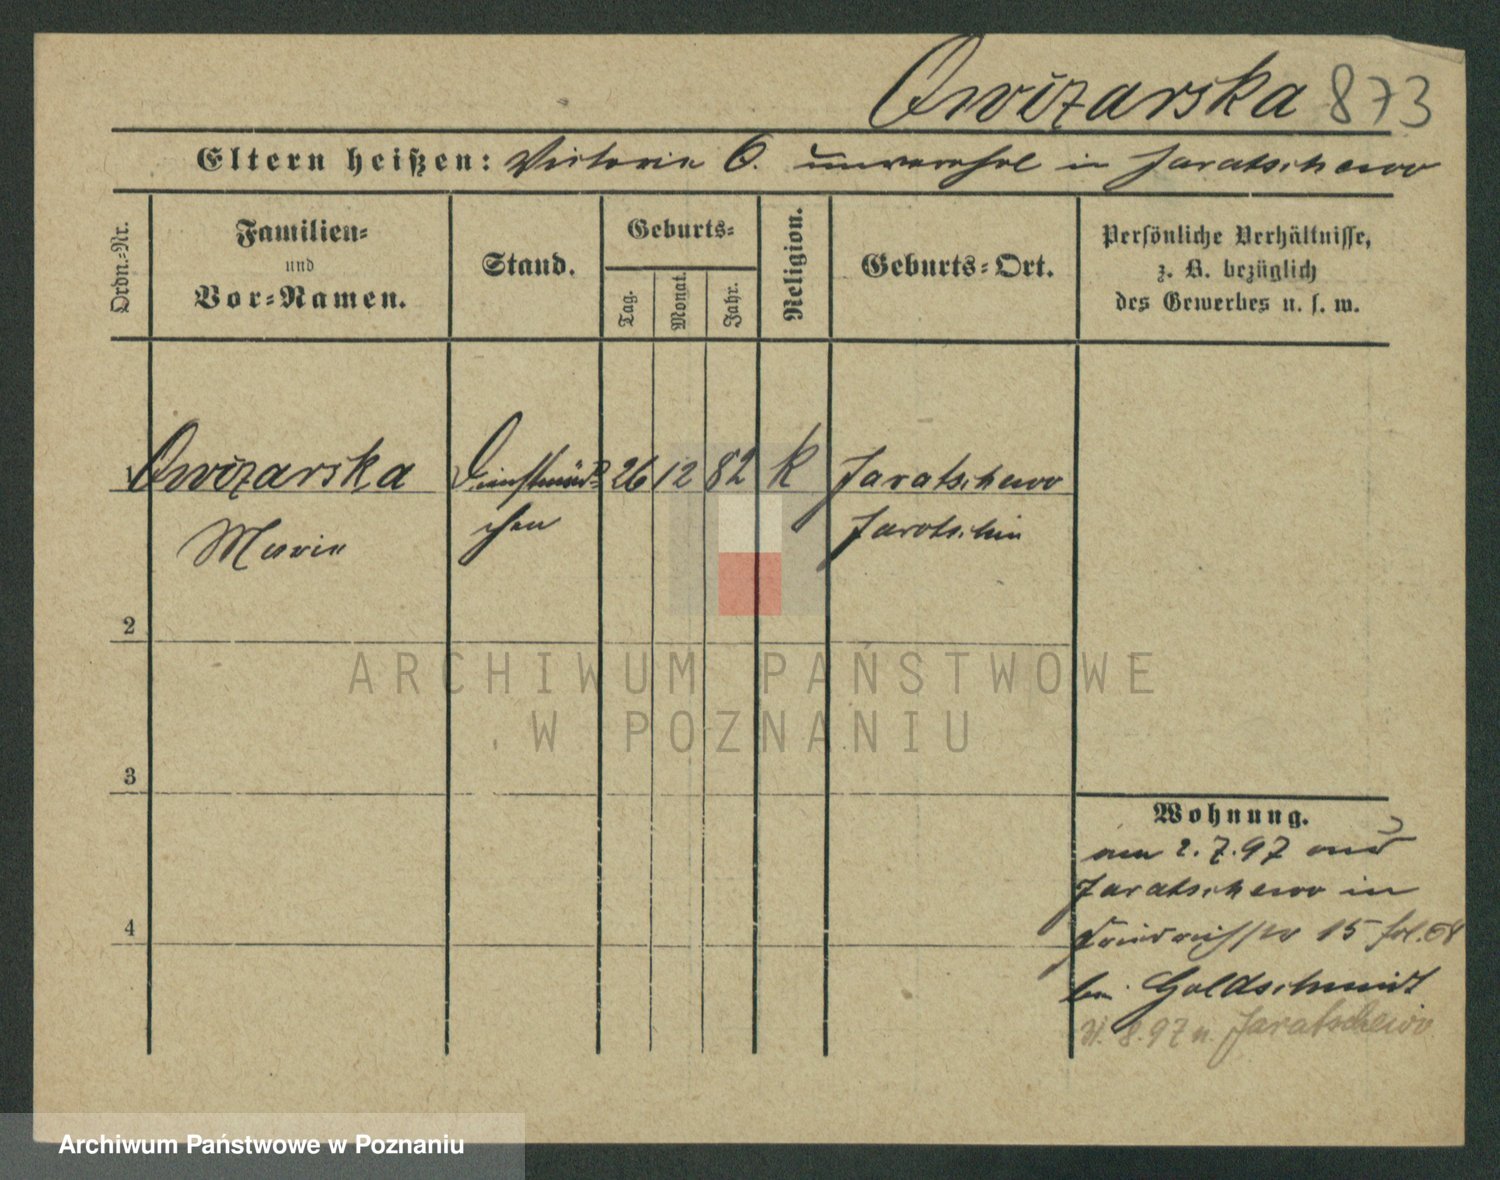 Owizarska 873
Eltern heißen: Victoria O. unverehel in Jaratschewo
Ordn.-Nr.
Familien-
und
Vor-Namen.
Stand.
Geburts-
Tag.
Monat.
Jahr.
Religion.
Geburts-Ort.
Persönliche Verhältnisse,
z. B. bezüglich
des Gewerbes u. s. w.
Owizarska Dienstmäd- 26 12 82 K Jaratschewo
Marie chen Jarotschin
2
3
4
Wohnung.
am 2.7.97 aus
Jaratschewo in
15
bei Goldschmidt
31.8.97 n. Jaratschewo
ARCHIWUM PAŃSTWOWE
W POZNANIU
Archiwum Państwowe w Poznaniu